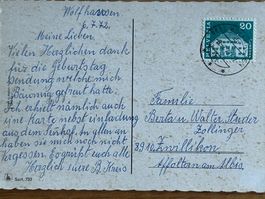 Wolfhausen
6.7.72.
Meine Lieben.
Vielen Herzlichen dank
für die Geburtstag
Sendung welche mich
Bäumig gefreut hatte.
Ich erhielt nämlich auch
eine Karte nebst einladung
aus dem Tenhof. In allen an
haben sie mich noch nicht
Vergessen. Es grüsst euch alle
Herzlich eure B. Kreis
HELVETIA
20
Familie
Berta u Walter Studer
Zollinger
8910 Zwillikon
Affoltern am Albis